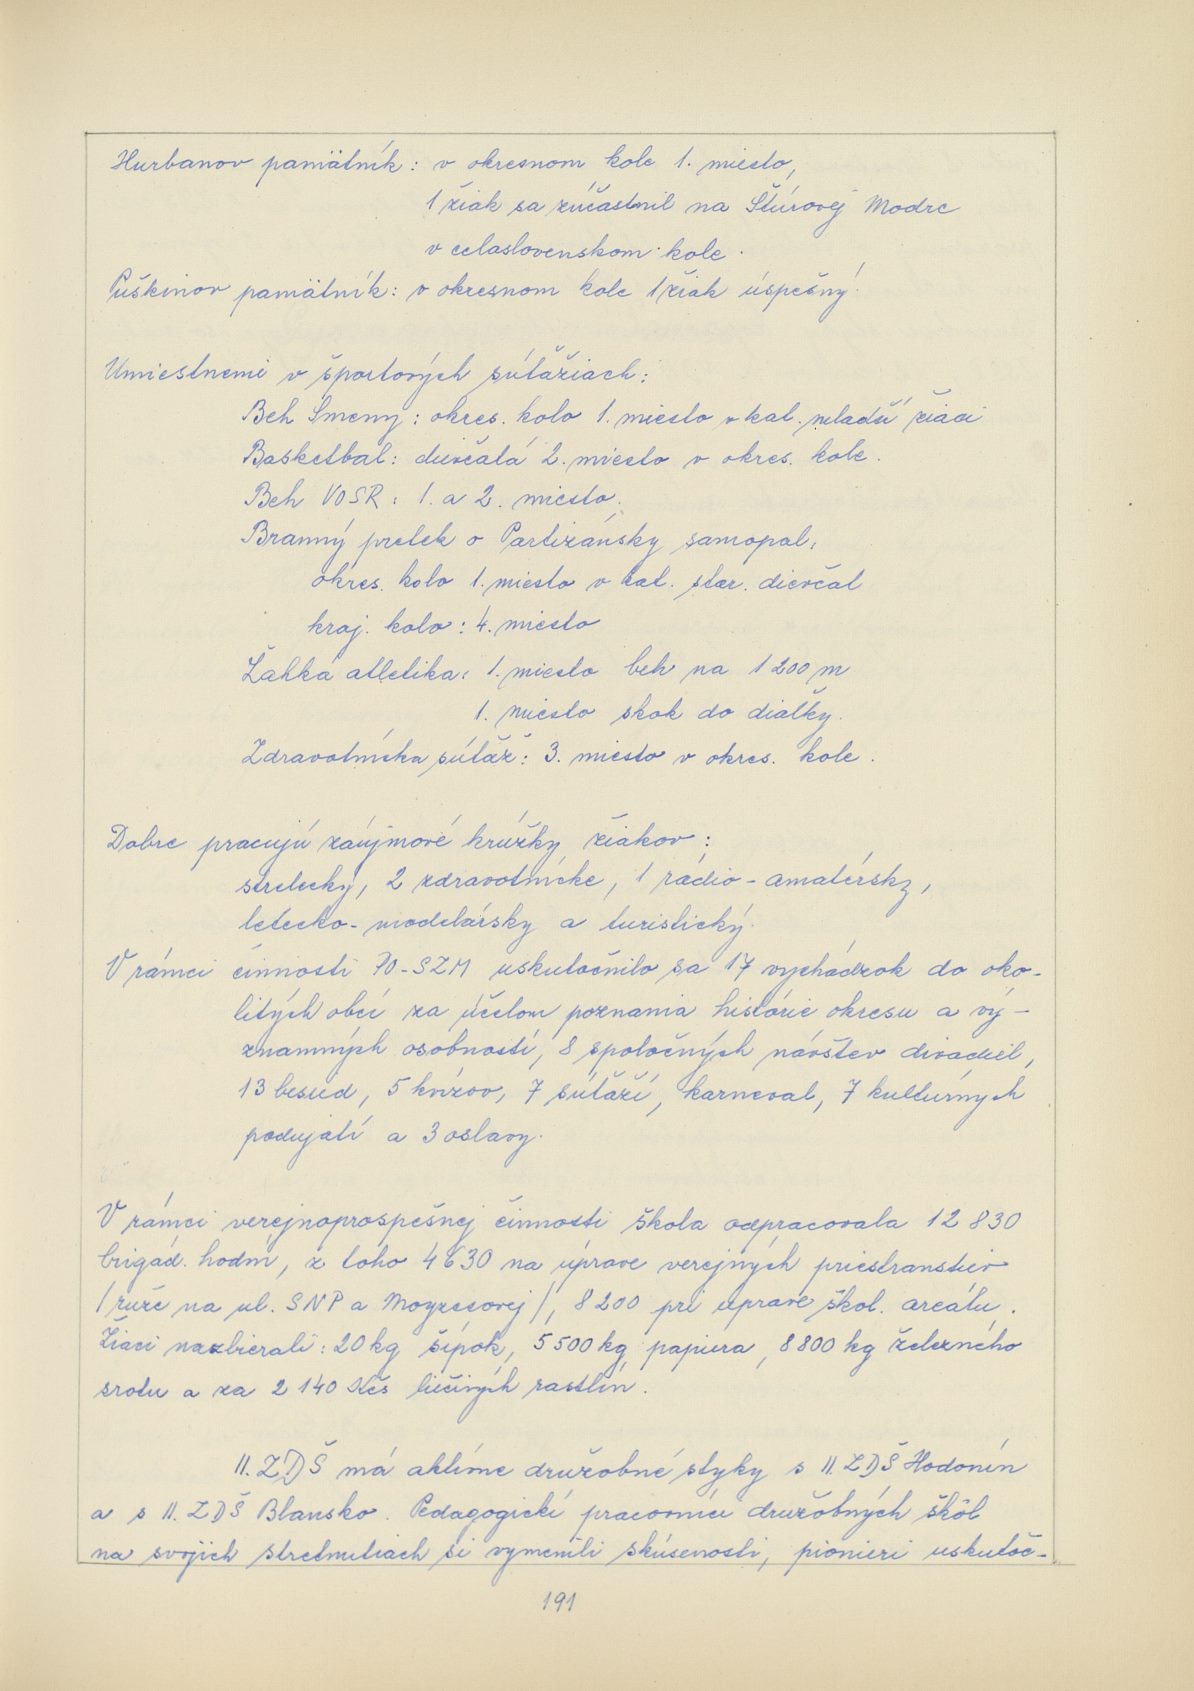 Hurbanov pamätník: v okresnom kole 1. miesto,
1 žiak sa zúčastnil na Štúrovej Modre
v celoslovenskom kole.
Puškinov pamätník: v okresnom kole 1 žiak úspešný.
Umiestnení v športových súťažiach:
Beh Smeny: okres. kolo 1. miesto v kat. mladší žiaci
Basketbal: dievčatá 2. miesto v okres. kole.
Beh VOSR: 1. a 2. miesto.
Branný pretek o Partizánsky samopal:
okres. kolo 1. miesto v kat. star. dievčat
kraj. kolo: 4. miesto
Ľahká atletika: 1. miesto beh na 1200 m
1. miesto skok do diaľky.
Zdravotnícka súťaž: 3. miesto v okres. kole.
Dobre pracujú záujmové krúžky žiakov:
strelecký, 2 zdravotnícke, 1 rádio-amatérsky,
letecko-modelársky a turistický.
V rámci činnosti PO-SZM uskutočnilo sa 17 vychádzok do oko-
litých obcí za účelom poznania histórie okresu a vý-
znamných osobností, 8 spoločných návštev divadiel,
13 besied, 5 kvízov, 7 súťaží, karneval, 7 kultúrnych
podujatí a 3 oslavy.
V rámci verejnoprospešnej činnosti škola odpracovala 12 830
brigád. hodín, z toho 4630 na úprave verejných priestranstiev
/ruže na ul. SNP a Moyzesovej/, 8 200 pri úprave škol. areálu.
Žiaci nazbierali: 20 kg šípok, 5 500 kg papiera, 8800 kg železného
šrotu a za 2 140 Kčs liečivých rastlín.
II. ZDŠ má aktívne družobné styky s II. ZDŠ Hodonín
a s II. ZDŠ Blansko. Pedagogickí pracovníci družobných škôl
na svojich stretnutiach si vymenili skúsenosti, pionieri uskutoč-
191